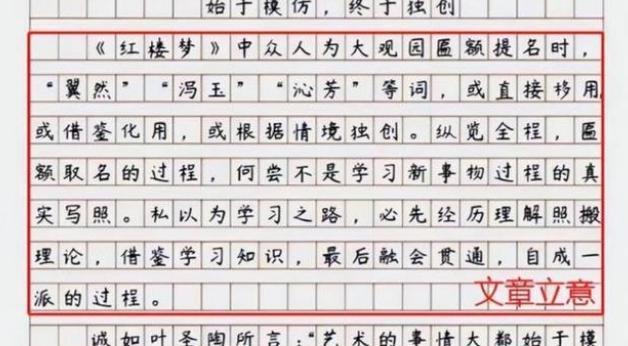 始于模仿，终于独创
《红楼梦》中众人为大观园匾额提名时，
“翼然”“泻玉”“沁芳”等词，或直接移用
或借鉴化用，或根据情境独创。纵览全程，匾
额取名的过程，何尝不是学习新事物过程的真
实写照。私以为学习之路，必先经历理解照搬
理论，借鉴学习知识，最后融会贯通，自成一
派的过程。
文章立意
诚如叶圣陶所言：“艺术的事情大都始于模